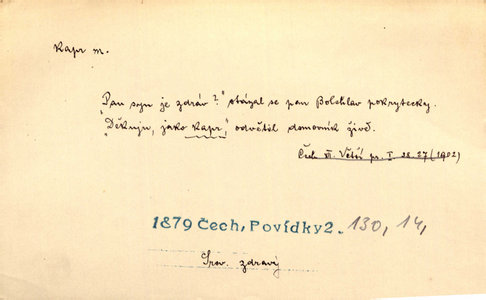 Kapr m.
Pan syn je zdráv?" otázal se pan Boleslav pokrytecky.
"Děkuju, jako kapr," odvětil domovník živě.
Čech VI. Větší pr. I 28.27 (1902)
1879 Čech, Povídky 2. 130, 14,
Srov. zdravý